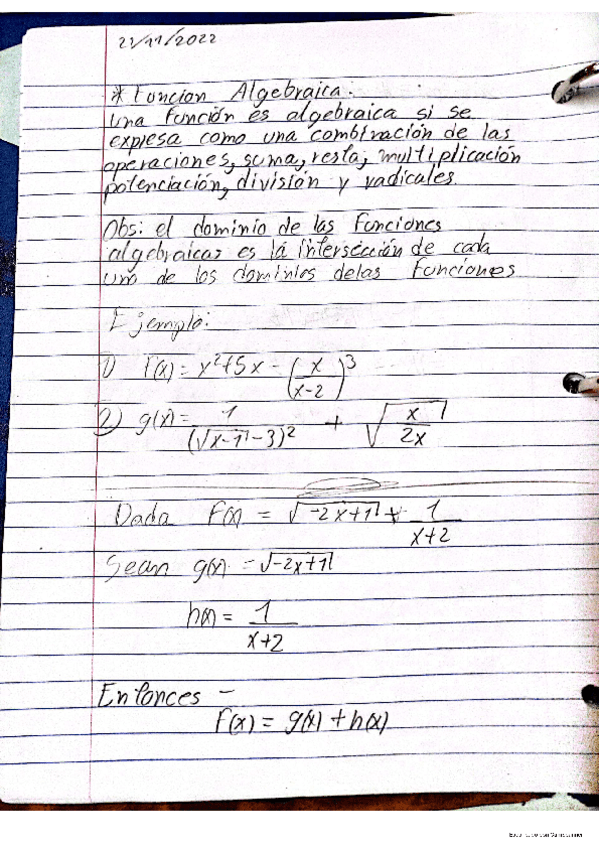 21/11/2022
* Función Algebraica:
una función es algebraica si se
expresa como una combinación de las
operaciones, suma, resta, multiplicación
potenciación, división y radicales.
Obs: el dominio de las funciones
algebraicas es la intersección de cada
uno de los dominios delas funciones
Ejemplo:
1) f(x) = x²+5x - (x/(x-2))³
2) g(x) = 1/(√(x-1) - 3)² + √(x/2x)
Dada f(x) = √(-2x+1) + 1/(x+2)
Sean g(x) = √(-2x+1)
h(x) = 1/(x+2)
Entonces -
f(x) = g(x) + h(x)